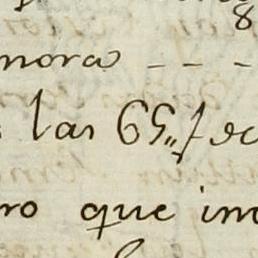 8
mora - - -
las 65„ f de
ro que im